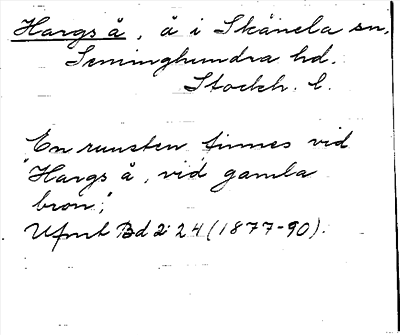 Hargs å, å i Skånela sn.
Seminghundra hd.
Stockh. l.
En runsten finnes vid
"Hargs å, vid gamla
bron";
Ufmt Bd 2: 24 (1877-90).